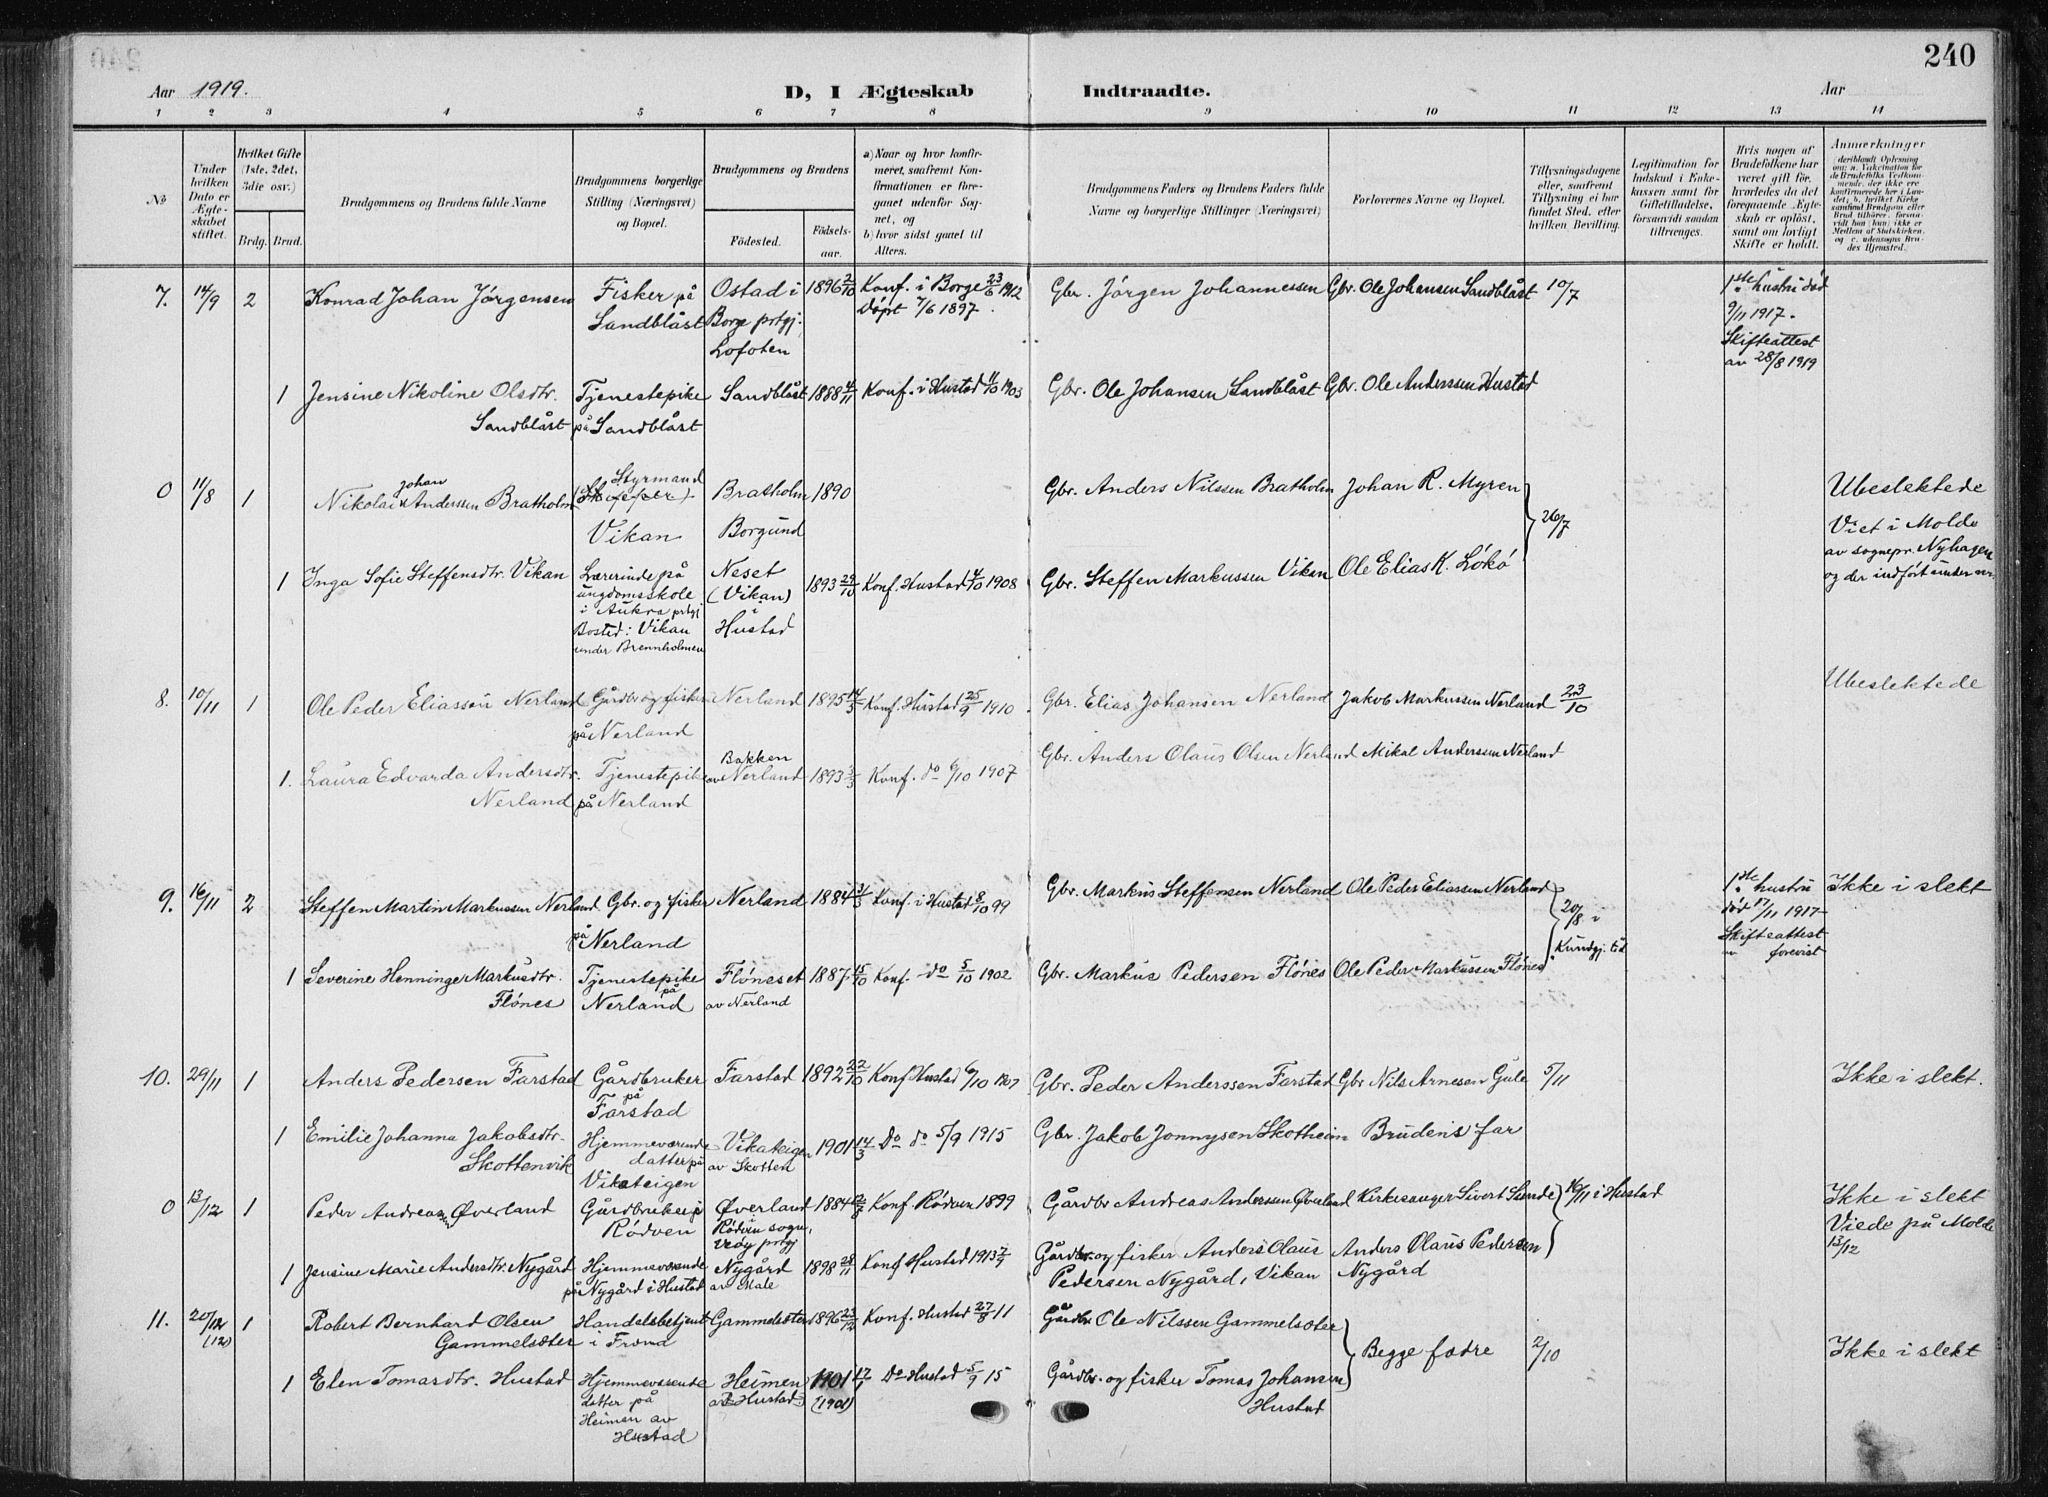 240
Aar 1919.
D, I Ægteskab Indtraadte.
Aar
1 2 3 4 5 6 7 8 9 10 11 12 13 14
No
Under hvilken Dato er Ægteskabet stiftet.
Hvilket Gifte (1ste, 2det, 3die osv.)
Brdg. Brud.
Brudgommens og Brudens fulde Navne
Brudgommens borgerlige Stilling (Næringsvei) og Bopæl.
Brudgommens og Brudens
Fødested. Fødselsaar.
a) Naar og hvor konfirmeret, saafremt Konfirmationen er foregaaet udenfor Sognet, og
b) hvor sidst gaaet til Alters.
Brudgommens Faders og Brudens Faders fulde Navne og borgerlige Stillinger (Næringsvei)
Forlovernes Navne og Bopæl.
Tillysningsdagene eller, saafremt Tillysning ei har fundet Sted, efter hvilken Bevilling.
Legitimation for Indskud i Enkekassen samt for Giftetilladelse, forsaavidt saadan tiltrænges.
Hvis nogen af Brudefolkene har været gift før, hvorledes da det foregaaende Ægteskab er opløst, samt om lovligt Skifte er holdt.
Anmerkninger
(deriblandt Oplysning om: a. Vakcination for de Brudefolks Vedkommende, der ikke ere konfirmerede her i Landet; b. hvilket Kirkesamfund Brudgom eller Brud tilhører, forsaavidt han (hun) ikke er Medlem af Statskirken, og c. udensogns Brudes Hjemsted.
7. 14/9 2 Konrad Johan Jørgensen
Fisker på Sandblåst
Ostad i Borge prtgj. Lofoten
1896 2/10
Konf. i Borge 23/6 1912
Døpt 7/6 1897.
Gbr. Jørgen Johannessen
Gbr. Ole Johansen Sandblåst
10/7
1ste hustru død 9/11 1917. Skifteattest av 28/8 1919
1 Jensine Nikoline Olsdtr. Sandblåst
Tjenestepike på Sandblåst
Sandblåst
1888 4/11
Konf. i Hustad 11/10 1903
Gbr. Ole Johansen Sandblåst
Gbr. Ole Anderssen Hustad
0 11/8 1 Nikolai Johan Anderssen Bratholm
Styrmand (Skipper)
Vikan
Bratholm Borgund
1890
Gbr. Anders Nilssen Bratholm
Johan R. Myren
26/7
Ubeslektede
Viet i Molde av sognepr. Nyhagen og der indført under nr.
1 Inga Sofie Steffensdtr. Vikan
Lærerinde på ungdomsskole i Aukra prtgj
Bosted: Vikan under Brennholmen
Neset (Vikan) i Hustad
1893 29/10
Konf. Hustad 4/10 1908
Gbr. Steffen Markussen Vikan
Ole Elias K. Løkø
8. 10/11 1 Ole Peder Eliassøn Nerland
Gårdbr og fisker på Nerland
Nerland
1895 14/3
Konf. Hustad 25/9 1910
Gbr. Elias Johansen Nerland
Jakob Markussen Nerland
23/10
Ubeslektede
1. Laura Edvarda Andersdtr. Nerland
Tjenestepike på Nerland
Bakken av Nerland
1893 3/3
Konf. do 6/10 1907
Gbr. Anders Olaus Olsen Nerland
Mikal Anderssen Nerland
9. 16/11 2 Steffen Martin Markussen Nerland
Gbr. og fisker på Nerland
Nerland
1884 3/5
Konf. i Hustad 8/10 99
Gbr. Markus Steffensen Nerland
Ole Peder Eliassen Nerland
20/8 i Kundgj. tid.
1ste hustru død 17/11 1917 Skifteattest forevist
Ikke i slekt
1 Severine Henninge Markusdtr. Flønes
Tjenestepike på Nerland
Fløneset av Nerland
1887 15/10
Konf. do 5/10 1902
Gbr. Markus Pedersen Flønes
Ole Peder Markussen Flønes
10. 29/11 1 Anders Pedersen Farstad
Gårdbruker på Farstad
Farstad
1892 22/10
Konf Hustad 6/10 1907
Gbr. Peder Anderssen Farstad
Gbr Nils Arnesen Gule
5/11
Ikke i slekt.
1 Emilie Johanna Jakobsdtr. Skottenvik
Hjemmeværende datter på Vikateigen
Vikateigen av Skotten
1901 14/3
Do do 5/9 1915
Gbr. Jakob Jonnysen Skotheim
Brudens far
0 13/12 1 Peder Andreas Øverland
Gårdbruker i Rødven
Øverland Rødven sogn, Veøy prtgj
1884
Konf. Rødven 1899
Gårdbr Andreas Anderssen Øverland
Kirkesanger Sivert Sunde
16/11 i Hustad
Ikke i slekt
Viede på Molde 13/12
1 Jensine Marie Andersdtr. Nygård
Hjemmeværende på Nygård i Hustad
Nygård av Male
1898 28/11
Konf Hustad 1913
Gårdbr. og fisker Anders Olaus Pedersen Nygård, Vikan
Anders Olaus Pedersen Nygård
11. 20/12 (12) 1 Robert Bernhard Olsen Gammelsæter
Handelsbetjent i Fræna
Gammelsæter
1896 23/12
Konf. Hustad 27/8 11
Gårdbr Ole Nilssen Gammelsæter
Begge fædre
2/10
Ikke i slekt
1 Elen Tomasdtr. Hustad
Hjemmeværende datter på Heimen av Hustad
Heimen av Hustad
1901 (1901)
Do Hustad 5/9 15
Gårdbr. og fisker Tomas Johansen Hustad